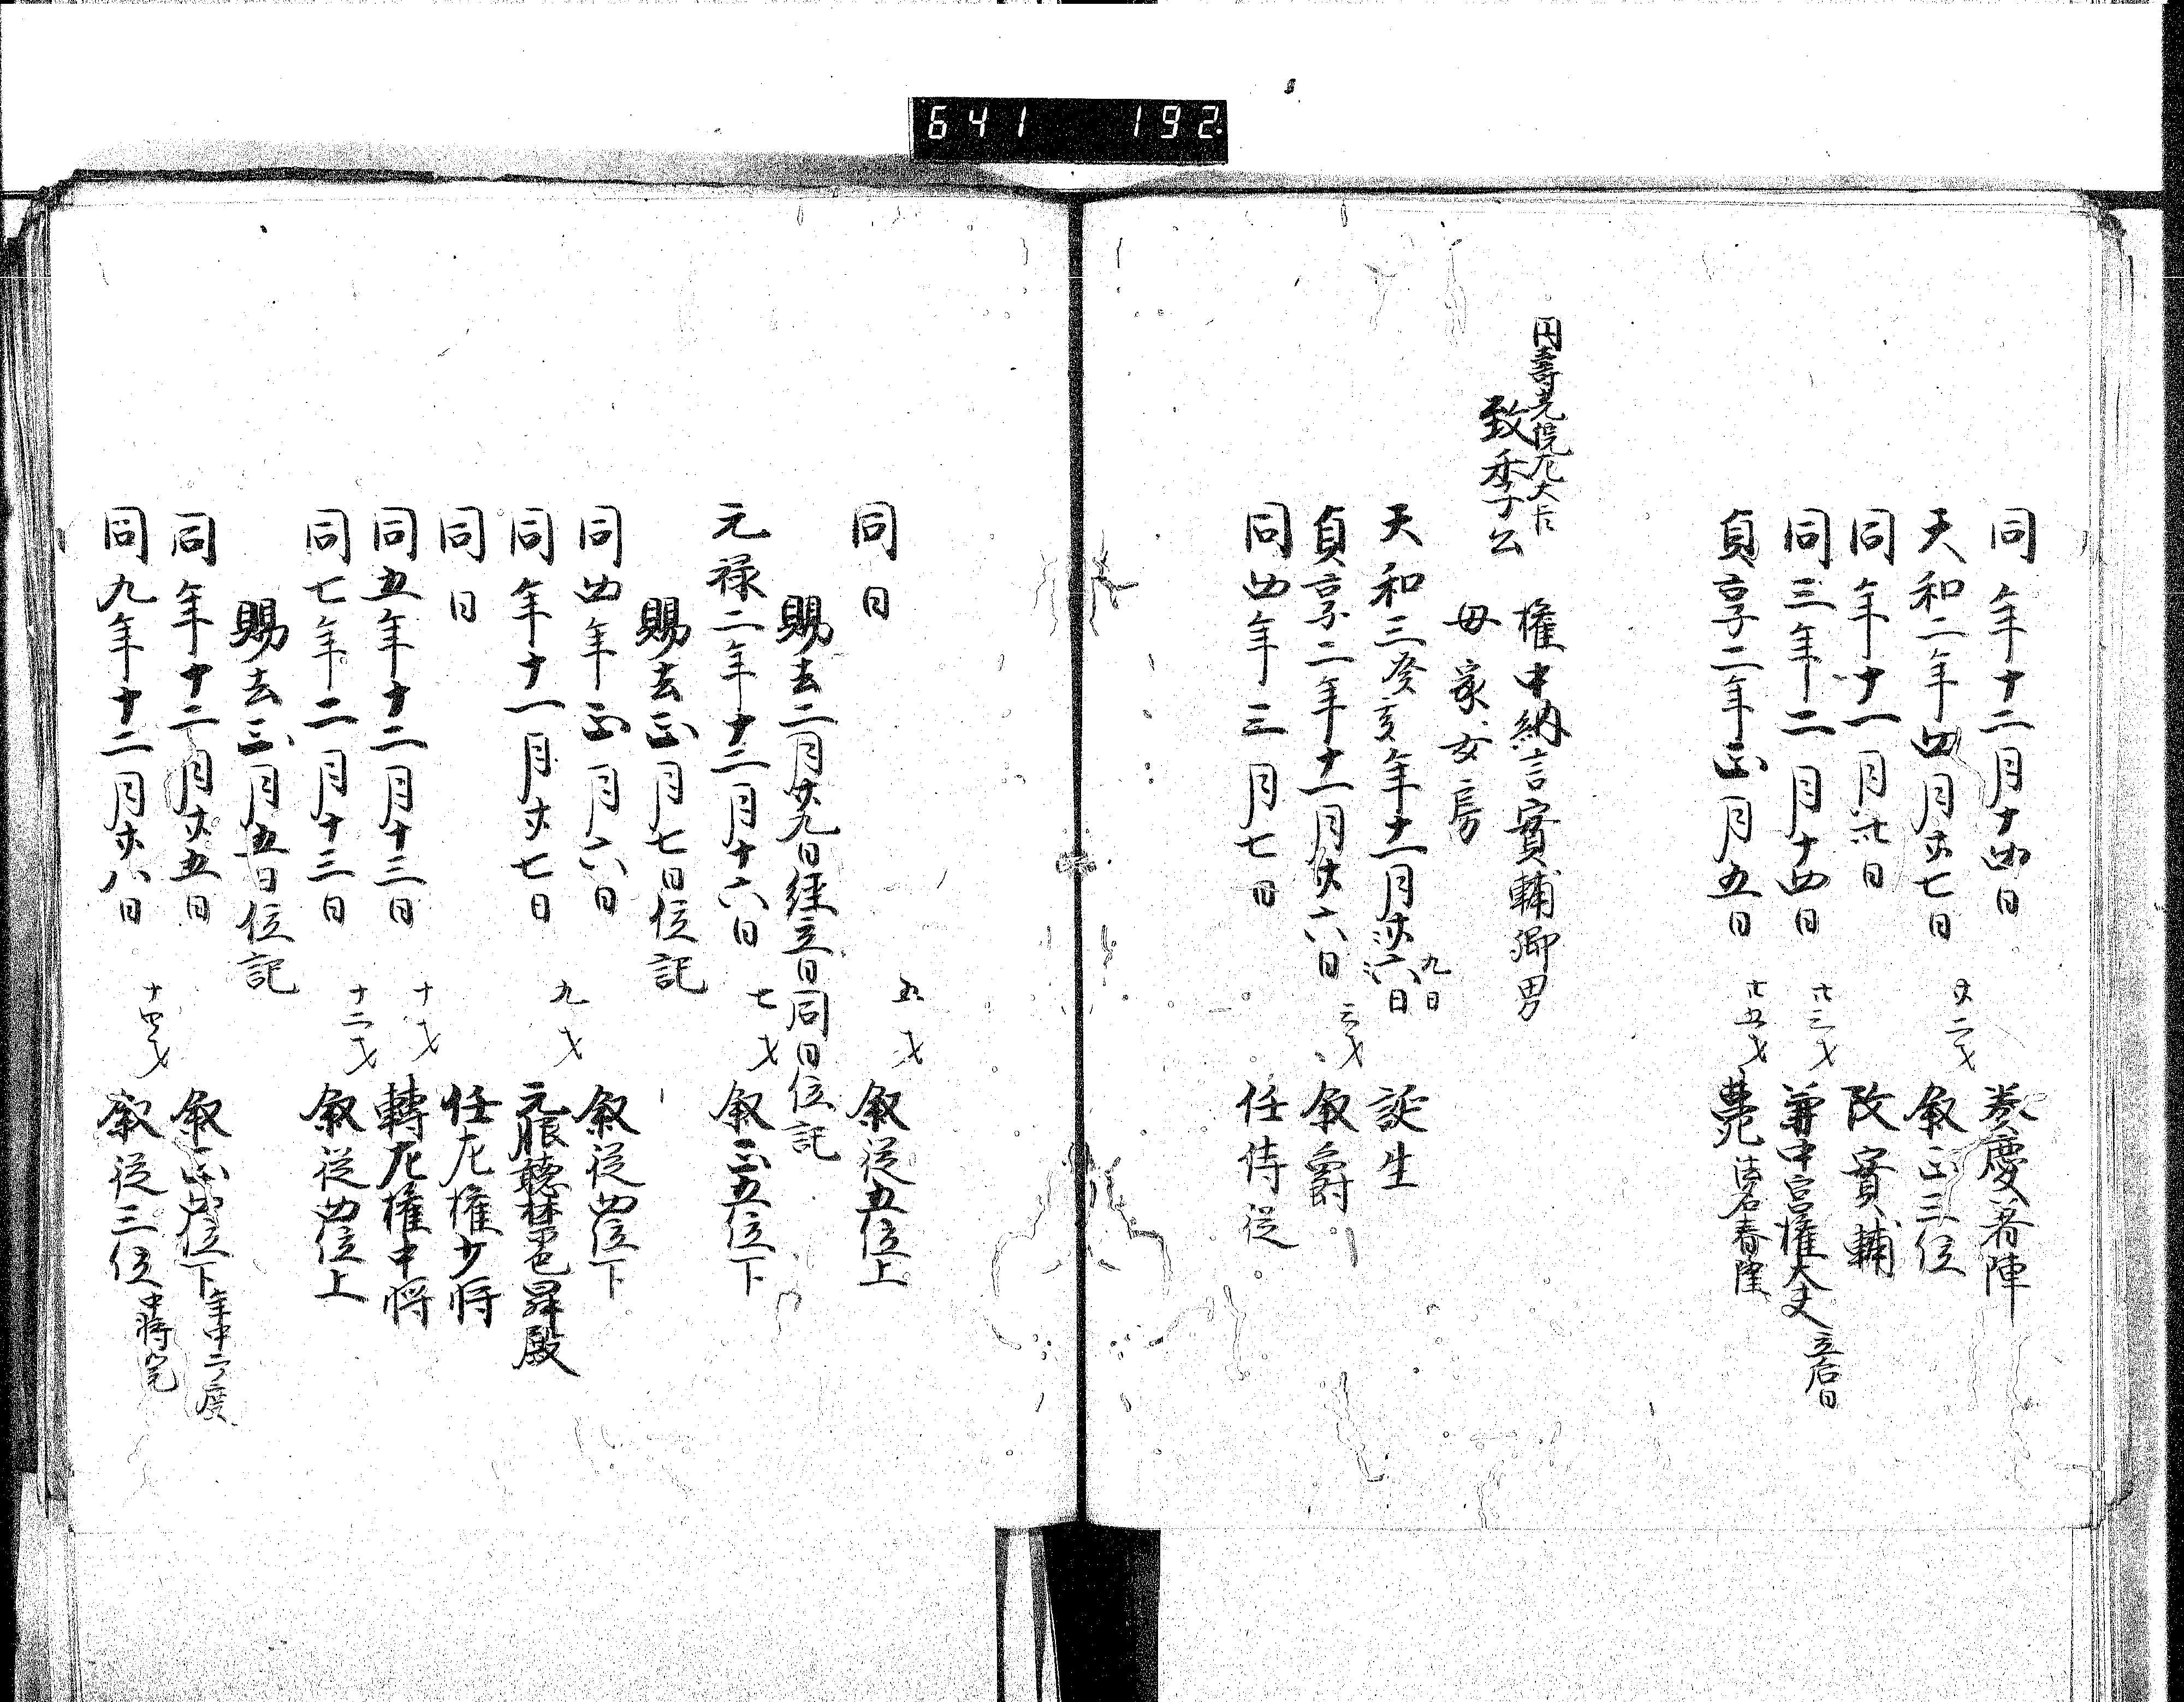 641 192.
同年十二月十四日 奏慶着陣
天和二年四月廿七日 廿二才 叙正三位
同年十一月卅日 改實輔
同三年二月十四日 廿三才 兼中宮權大夫 立后日
貞享二年正月五日 廿五才 薨 法名春隆
円壽光院左大臣
致季公 權中納言實輔卿男
母家女房
天和三癸亥年十一月廿六日 九日 誕生
貞享二年十一月廿六日 三才 叙爵
同四年三月七日 任侍從
同日 五才 叙從五位上
賜去二月廿九日經立日同日位記
元禄二年十二月十六日 七才 叙正五位下
賜去正月七日位記
同四年正月六日 九才 叙從四位下
同年十一月廿七日 元服聽禁色昇殿
同日 任左權少将
同五年十二月十三日 十才 轉左權中将
同七年二月十三日 十二才 叙從四位上
賜去正月五日位記
同年十二月廿五日 叙正四位下 年中二度
同九年十二月廿八日 十四才 叙從三位 中将